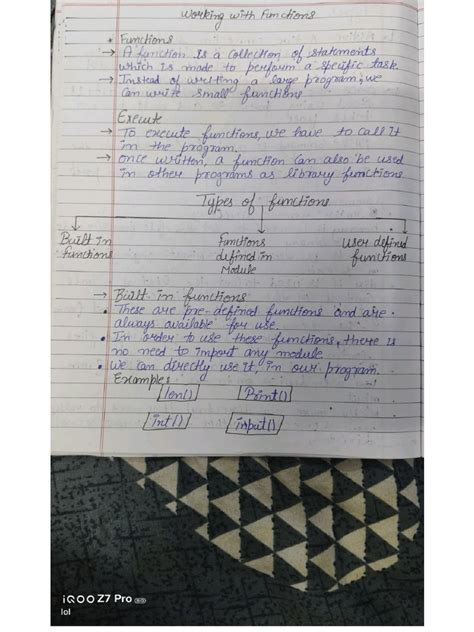 Working with Functions
• Functions
→ A function is a collection of statements
which is made to perform a specific task.
→ Instead of writing a large program, we
can write small functions
Execute
→ To execute functions, we have to call it
in the program.
→ once written, a function can also be used
in other programs as library functions
Types of functions
Built in functions
Functions defined in Module
User defined functions
→ Built-in functions
• These are pre-defined functions and are
always available for use.
• In order to use these functions, there is
no need to import any module.
• We can directly use it, in our program.
Examples
len() Print()
int() input()
iQOO Z7 Pro 5G
lol